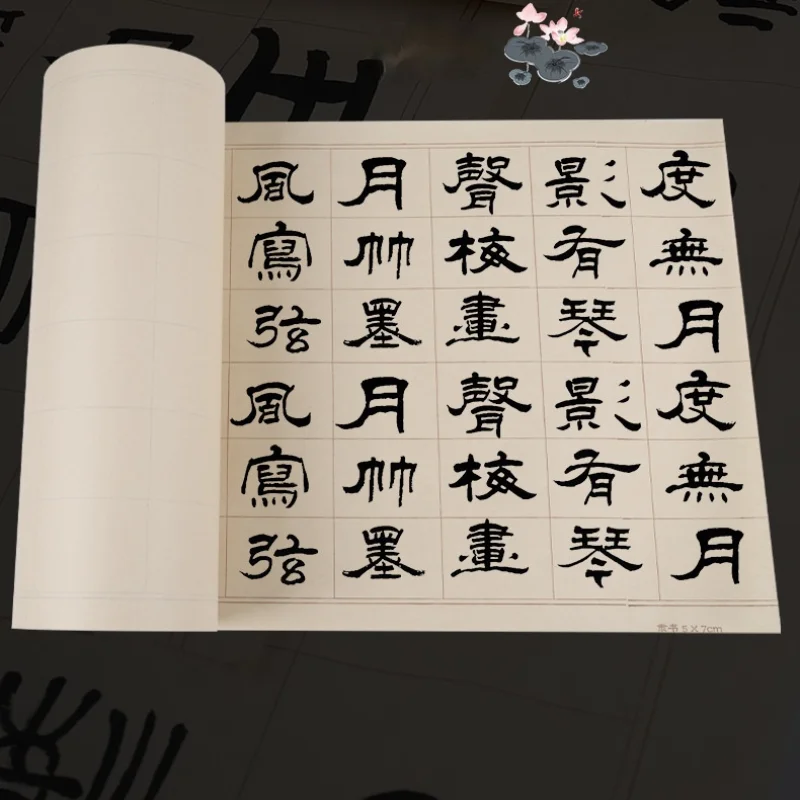 度無月度無月
影有琴影有琴
聲梅畫聲梅畫
月竹墨月竹墨
風寫弦風寫弦
隶书 5×7cm